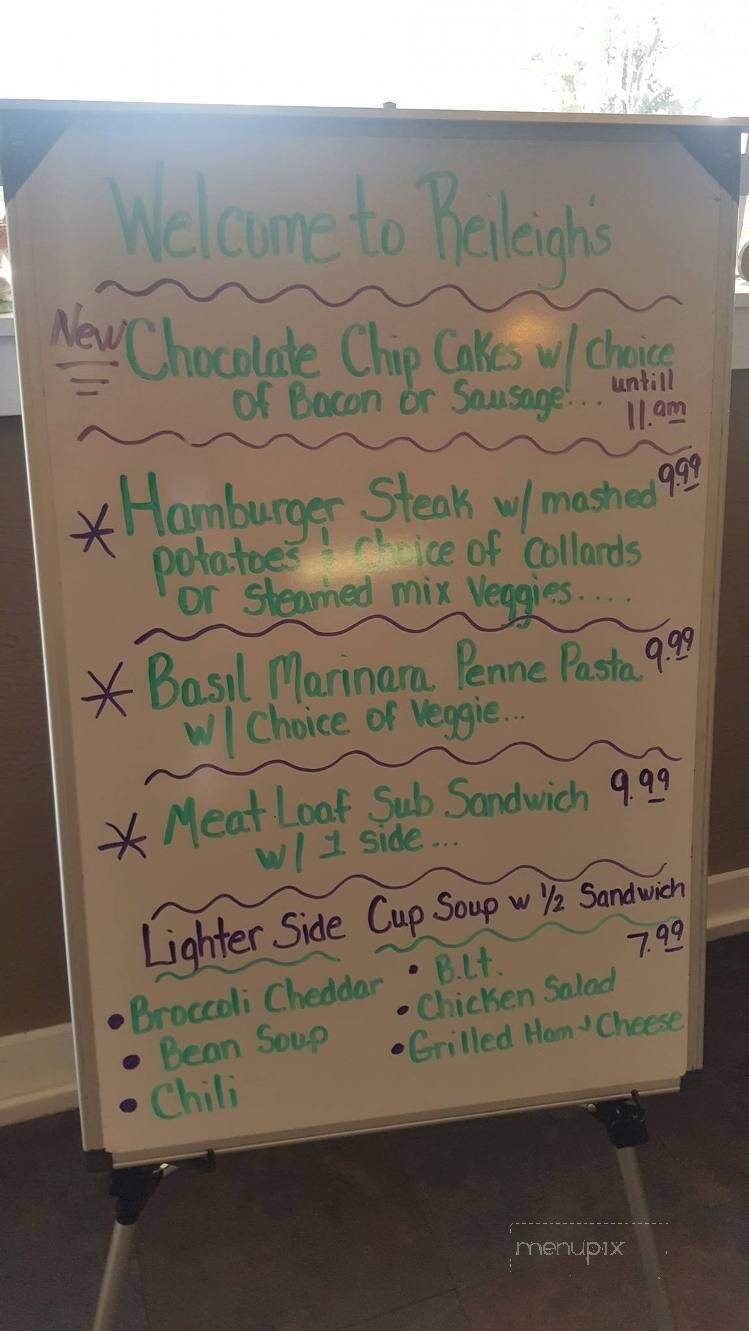 Welcome to Reileigh's
New Chocolate Chip Cakes w/ choice
of Bacon or Sausage... untill
11.am
* Hamburger Steak w/ mashed 9.99
potatoes & Choice of Collards
or Steamed mix Veggies....
* Basil Marinara Penne Pasta 9.99
w/ Choice of Veggie...
* Meat Loaf Sub Sandwich 9.99
w/ 1 side...
Lighter Side Cup Soup w 1/2 Sandwich
7.99
• Broccoli Cheddar
• Bean Soup
• Chili
• B.Lt.
• Chicken Salad
• Grilled Ham & Cheese
menupix